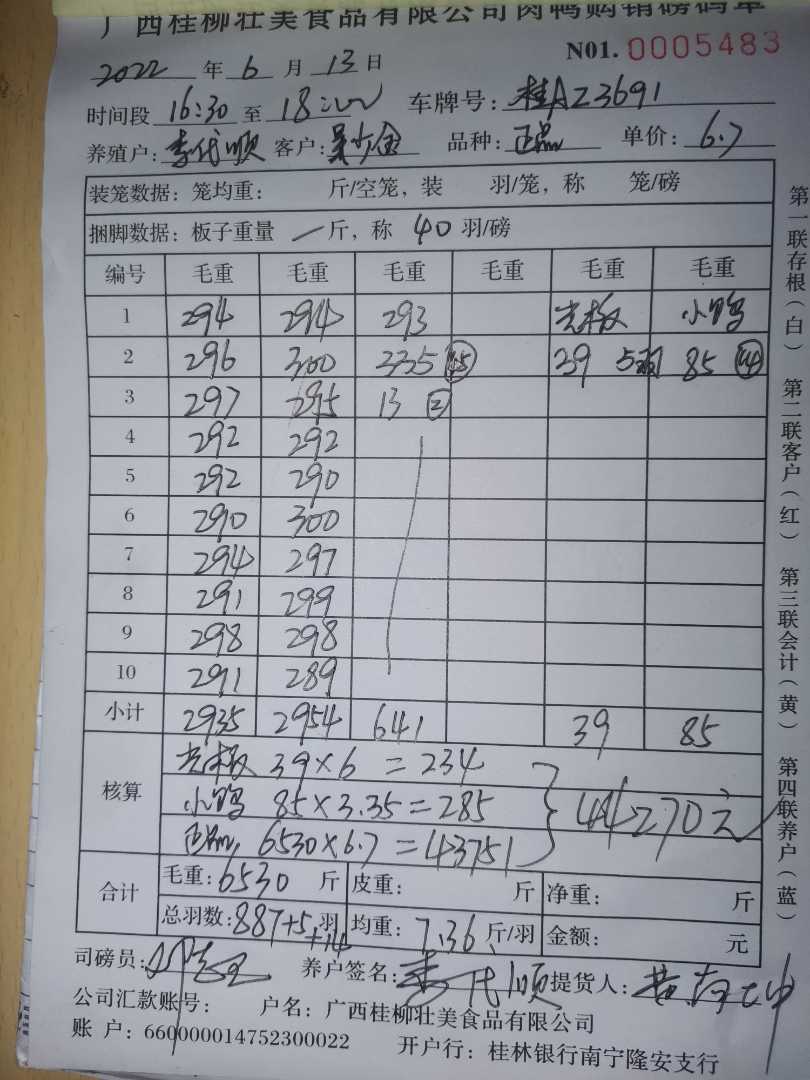 广西桂柳壮美食品有限公司肉鸭购销磅码单
N01. 0005483
2022 年 6 月 13 日
时间段 16:30 至 18:00 车牌号: 桂AZ3691
养殖户: 李代顺 客户: 吴少金 品种: 正品 单价: 6.7
装笼数据: 笼均重: 斤/空笼, 装 羽/笼, 称 笼/磅
捆脚数据: 板子重量 一 斤, 称 40 羽/磅
编号 毛重 毛重 毛重 毛重 毛重 毛重
1 294 294 293 光板 小鸭
2 296 300 335 45 39 5羽 85 14
3 297 295 13 2
4 292 292
5 292 290
6 290 300
7 294 297
8 291 299
9 298 298
10 291 289
小计 2935 2954 641 39 85
核算 光板 39×6=234
小鸭 85×3.35=285
正品, 6530×6.7=43751
44270元
合计 毛重: 6530 斤 皮重: 斤 净重: 斤
总羽数: 887+5+14 羽 均重: 7.36 斤/羽 金额: 元
司磅员: 养户签名: 李代顺 提货人:
公司汇款账号: 户名: 广西桂柳壮美食品有限公司
账 户: 660000014752300022 开户行: 桂林银行南宁隆安支行
第一联存根(白) 第二联客户(红) 第三联会计(黄) 第四联养户(蓝)